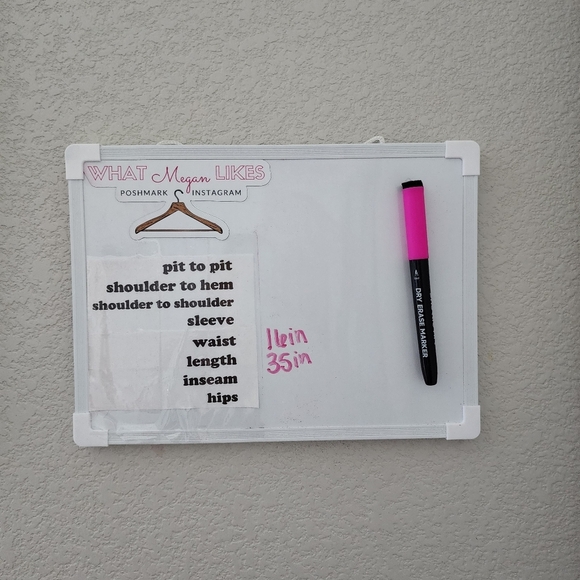 WHAT Megan LIKES
POSHMARK INSTAGRAM
pit to pit
shoulder to hem
shoulder to shoulder
sleeve
waist 16in
length 35in
inseam
hips
DRY ERASE MARKER